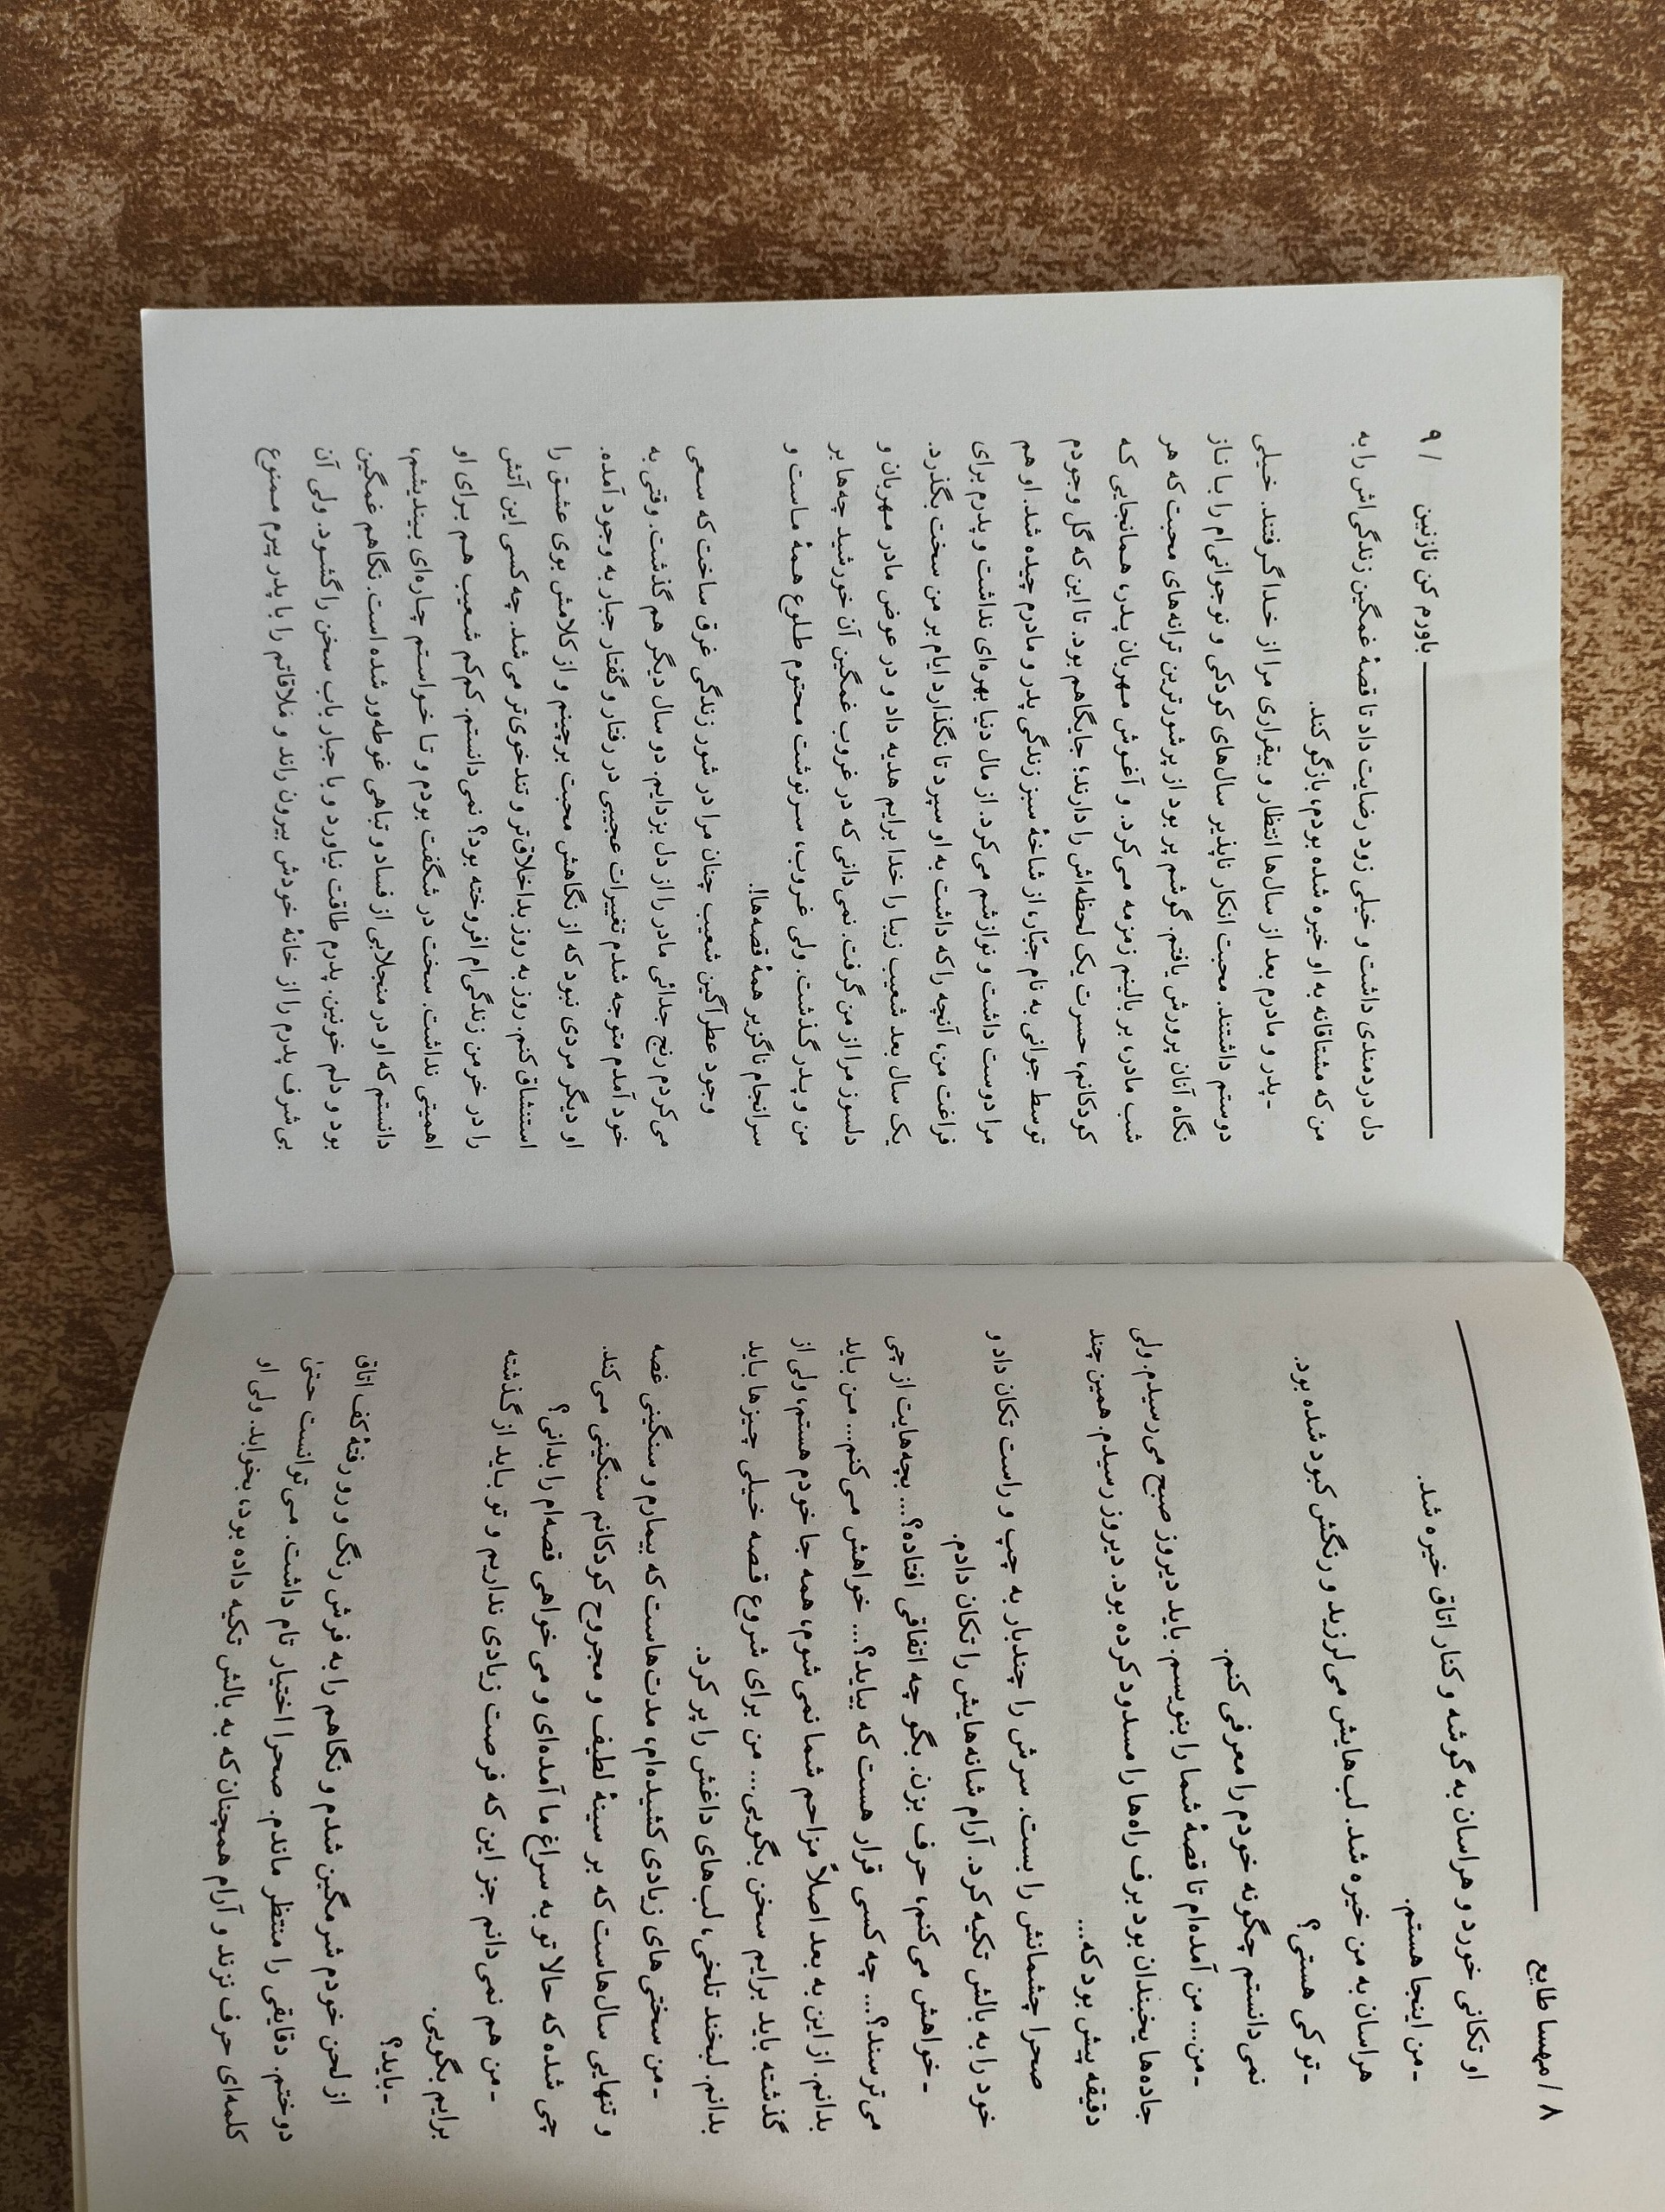 ۸ / مهسا طایع
او تکانی خورد و هراسان به گوشه و کنار اتاق خیره شد.
ـ من اینجا هستم.
هراسان به من خیره شد. لب‌هایش می‌لرزید و رنگش کبود شده بود.
ـ تو کی هستی؟
نمی‌دانستم چگونه خودم را معرفی کنم.
ـ من... من آمده‌ام تا قصهٔ شما را بنویسم. باید دیروز صبح می‌رسیدم. ولی
جاده‌ها یخبندان بود برف راه‌ها را مسدود کرده بود. دیروز رسیدم. همین چند
دقیقه پیش بود که...
صحرا چشمانش را بست. سرش را چندبار به چپ و راست تکان داد و
خود را به بالش تکیه کرد. آرام شانه‌هایش را تکان دادم.
ـ خواهش می‌کنم، حرف بزن. بگو چه اتفاقی افتاده؟... بچه‌هایت از چی
می‌ترسند؟... چه کسی قرار هست که بیاید؟... خواهش می‌کنم... من باید
بدانم. از این به بعد اصلاً مزاحم شما نمی‌شوم، همه جا خودم هستم، ولی از
گذشته باید برایم سخن بگویی... من برای شروع قصه خیلی چیزها باید
بدانم. لبخند تلخی، لب‌های داغش را پر کرد.
ـ من سختی‌های زیادی کشیده‌ام، مدت‌هاست که بیمارم و سنگینی غصه
و تنهایی سال‌هاست که بر سینهٔ لطیف و مجروح کودکانم سنگینی می‌کند.
چی شده که حالا تو به سراغ ما آمده‌ای و می‌خواهی قصه‌ام را بدانی؟
ـ من هم نمی‌دانم جز این که فرصت زیادی نداریم و تو باید از گذشته
برایم بگویی.
ـ باید؟
از لحن خودم شرمگین شدم و نگاهم را به فرش رنگ و رو رفتهٔ کف اتاق
دوختم. دقایقی را منتظر ماندم. صحرا اختیار تام داشت. می‌توانست حتیٰ
کلمه‌ای حرف نزند و آرام همچنان که به بالش تکیه داده بود، بخوابد. ولی او
باورم کن نازنین / ۹
دل دردمندی داشت و خیلی زود رضایت داد تا قصهٔ غمگین زندگی‌اش را به
من که مشتاقانه به او خیره شده بودم، بازگو کند.
ـ پدر و مادرم بعد از سال‌ها انتظار و بیقراری مرا از خدا گرفتند. خیلی
دوستم داشتند. محبت انکار ناپذیر سال‌های کودکی و نوجوانی‌ام را با ناز
نگاه آنان پرورش یافتم. گوشم پر بود از پرشورترین ترانه‌های محبت که هر
شب مادر، بر بالینم زمزمه می‌کرد. و آغوش مهربان پدر، همانجایی که
کودکانم، حسرت یک لحظه‌اش را دارند؛ جایگاهم بود. تا این که گل وجودم
توسط جوانی به نام جبّار، از شاخهٔ سبز زندگی پدر و مادرم چیده شد. او هم
مرا دوست داشت و نوازشم می‌کرد. از مال دنیا بهره‌ای نداشت و پدرم برای
فراغت من، آنچه را که داشت به او سپرد تا نگذارد ایام بر من سخت بگذرد.
یک سال بعد شعیب زیبا را خدا برایم هدیه داد و در عوض مادر مهربان و
دلسوز مرا از من گرفت. نمی‌دانی که در غروب غمگین آن خورشید چه‌ها بر
من و پدر گذشت. ولی غروب، سرنوشت محتوم طلوع همهٔ ماست و
سرانجام ناگزیر همهٔ قصه‌ها!.
وجود عطرآگین شعیب چنان مرا در شور زندگی غرق ساخت که سعی
می‌کردم رنج جدائی مادر را از دل بزدایم. دو سال دیگر هم گذشت. وقتی به
خود آمدم متوجه شدم تغییرات عجیبی در رفتار و گفتار جبار به وجود آمده.
او دیگر مردی نبود که از نگاهش محبت برچینم و از کلامش بوی عشق را
استنشاق کنم. روز به روز بداخلاق‌تر و تندخوی‌تر می‌شد. چه کسی این آتش
را در خرمن زندگی‌ام افروخته بود؟ نمی‌دانستم. کم‌کم شعیب هم برای او
اهمیتی نداشت. سخت در شگفت بودم و تا خواستم چاره‌ای بیندیشم،
دانستم که او در منجلابی از فساد و تباهی غوطه‌ور شده است. نگاهم غمگین
بود و دلم خونین. پدرم طاقت نیاورد و با جبار باب سخن را گشود. ولی آن
بی‌شرف پدرم را از خانهٔ خودش بیرون راند و ملاقاتم را با پدر پیرم ممنوع